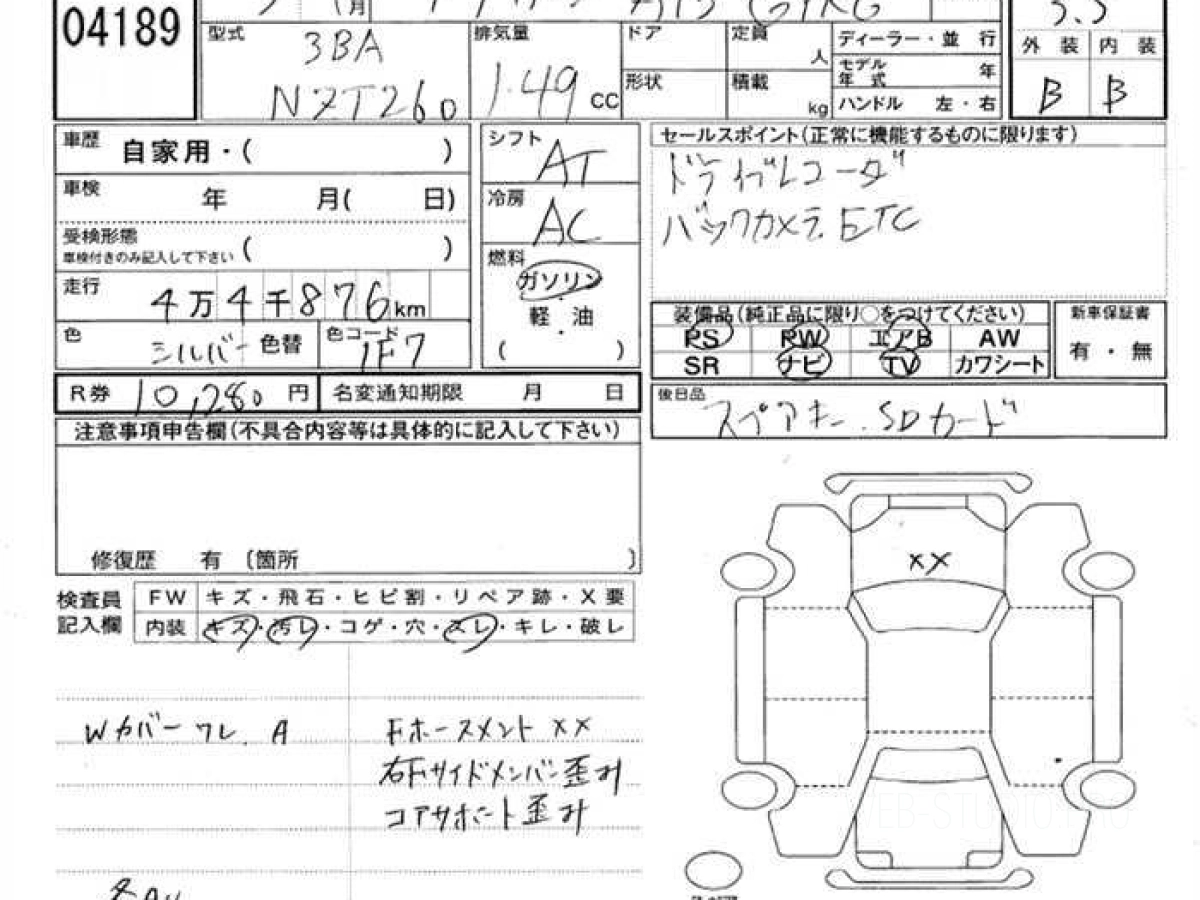 04189
月
型式
3BA
NZT260
排気量
1.49 cc
ドア
定員
人
形状
積載
kg
ディーラー・並 行
モデル年 式 年
ハンドル 左・右
3.5
外 装 内 装
B B
車歴 自家用・( )
車検 年 月( 日)
受検形態
車検付きのみ記入して下さい ( )
走行 4万4千876km
色 シルバー 色替 色コード 1F7
シフト AT
冷房 AC
燃料
ガソリン
・
軽・油
( )
セールスポイント(正常に機能するものに限ります)
ドライブレコーダ
バックカメラ. ETC
装備品(純正品に限り○をつけてください)
PS PW エアB AW
SR ナビ TV カワシート
新車保証書
有・無
R券 10,280 円 名変通知期限 月 日
後日品
スペアキー. SDカード
注意事項申告欄(不具合内容等は具体的に記入して下さい)
修復歴 有 〔箇所 〕
検査員
記入欄
FW キズ・飛石・ヒビ割・リペア跡・X要
内装 キズ・汚レ・コゲ・穴・スレ・キレ・破レ
Wカバーワレ. A
Fホースメント ××
右Fサイドメンバン歪み
コアサポート歪み
××